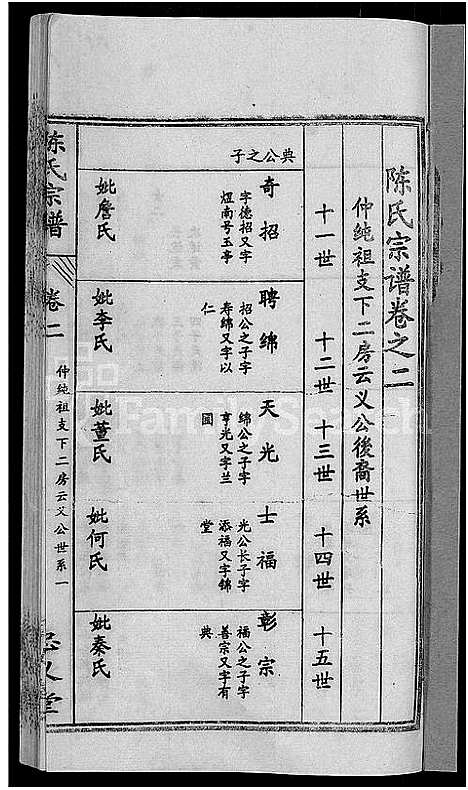 陈氏宗谱卷之二
仲纯祖支下二房云义公後裔世系
十一世
典公之子
奇招
字德招又字
煴南号玉亭
妣詹氏
十二世
聘绵
招公之子字
寿绵又字以
仁
妣李氏
十三世
天光
绵公之子字
亨光又字兰
圃
妣董氏
十四世
士福
光公长子字
添福又字锦
堂
妣何氏
十五世
彰宗
福公之子字
善宗又字有
典
妣秦氏
陈氏宗谱
卷二
仲纯祖支下二房云义公世系一
忠义堂
FamilySearch